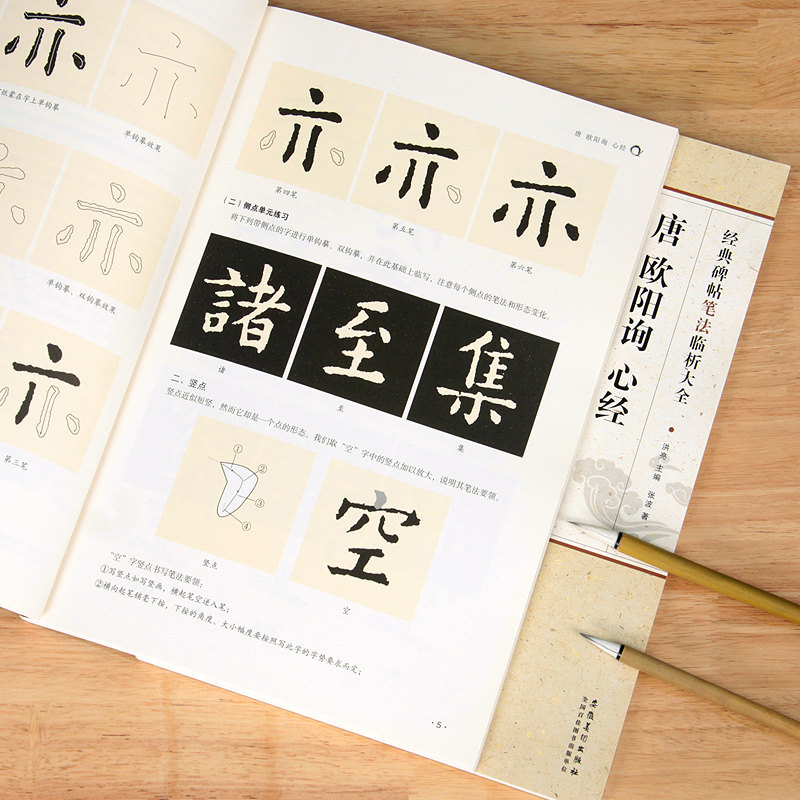 亦
纸蒙在字上单钩摹
单钩摹效果
单钩摹、双钩摹效果
亦
第三笔
唐 欧阳询 心经
亦
亦
亦
第四笔
第五笔
第六笔
（二）侧点单元练习
将下列带侧点的字进行单钩摹、双钩摹，并在此基础上临写，注意每个侧点的笔法和形态变化。
諸
至
集
诸
至
集
二、竖点
竖点近似短竖，然而它却是一个点的形态。我们取“空”字中的竖点加以放大，说明其笔法要领。
①
②
③
④
空
竖点
空
“空”字竖点书写笔法要领：
①写竖点如写竖画，横起笔空逆入笔；
②横向起笔铺毫下按，下按的角度、大小幅度要按照写此字的字势要求而定；
·5·
经典碑帖笔法临析大全
唐 欧阳询 心经
洪亮 主编 张波 著
安徽美术出版社
全国百佳图书出版单位